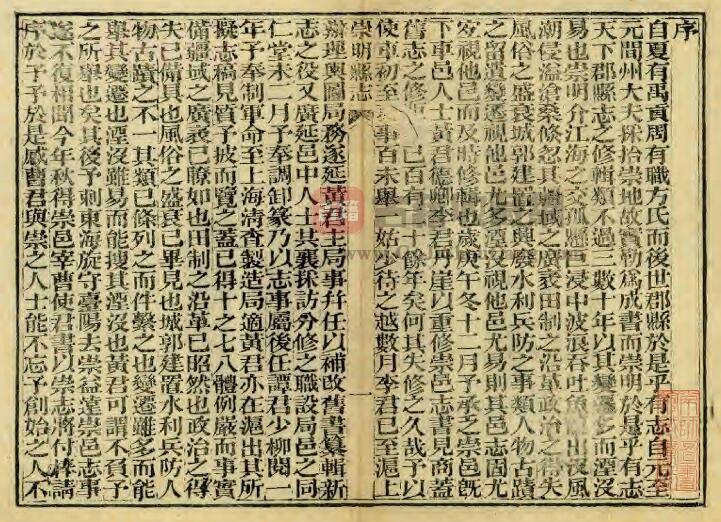 序
自夏有禹貢周有職方氏而後世郡縣於是乎有志自元至
元間州大夫採拾崇地故實勒爲成書而崇明於是乎有志
天下郡縣志之修輯類不過三數十年以其變遷多而湮沒
易也崇明介江海之交孤懸巨浸中波濤吞吐魚出沒風
潮侵溢滄桑倏忽其疆域之廣袤田制之沿革政治之得失
風俗之盛衰城郭建置之興廢水利兵防之事類人物古蹟
之留遺變遷視他邑尤多湮沒視他邑尤易則其邑志固尤
宜視他邑而及時修輯也歲庚午冬十二月予承乏崇邑旣
下車邑人士黃君德卿李君丹崖以重修崇邑志書見商蓋
舊志之修已百有十餘年矣何其失修之久哉予以
使車初至事百未舉姑少待之越數月李君已至滬上
崇明縣志 一
辦理輿圖局務遂延黃君主局事幷任以補改舊書纂輯新
志之役又廣延邑中人士共襄採訪分修之職設局邑之同
仁堂未二月予奉調卸篆乃以志事屬後任譚君少柳閱一
年予奉制軍命至上海清查製造局適黃君亦在滬出其所
擬志稿見質予披而覽之蓋已得十之七八體例嚴而事實
備疆域之廣袤已瞭如也田制之沿革已昭然也政治之得
失已備具也風俗之盛衰已畢見也城郭建置水利兵防人
物古蹟之不一其類已條列之而件繫之也變遷雖多而能
舉其變遷也湮沒雖易而能搜其湮沒也黃君可謂不負予
之所舉也矣其後予刺東海旋守臺陽去崇益遠崇邑志事
遂不復相聞今年秋得崇邑宰曹使君書以崇志將付請
序於予予於是感曹君與崇之人士能不忘予創始之人不